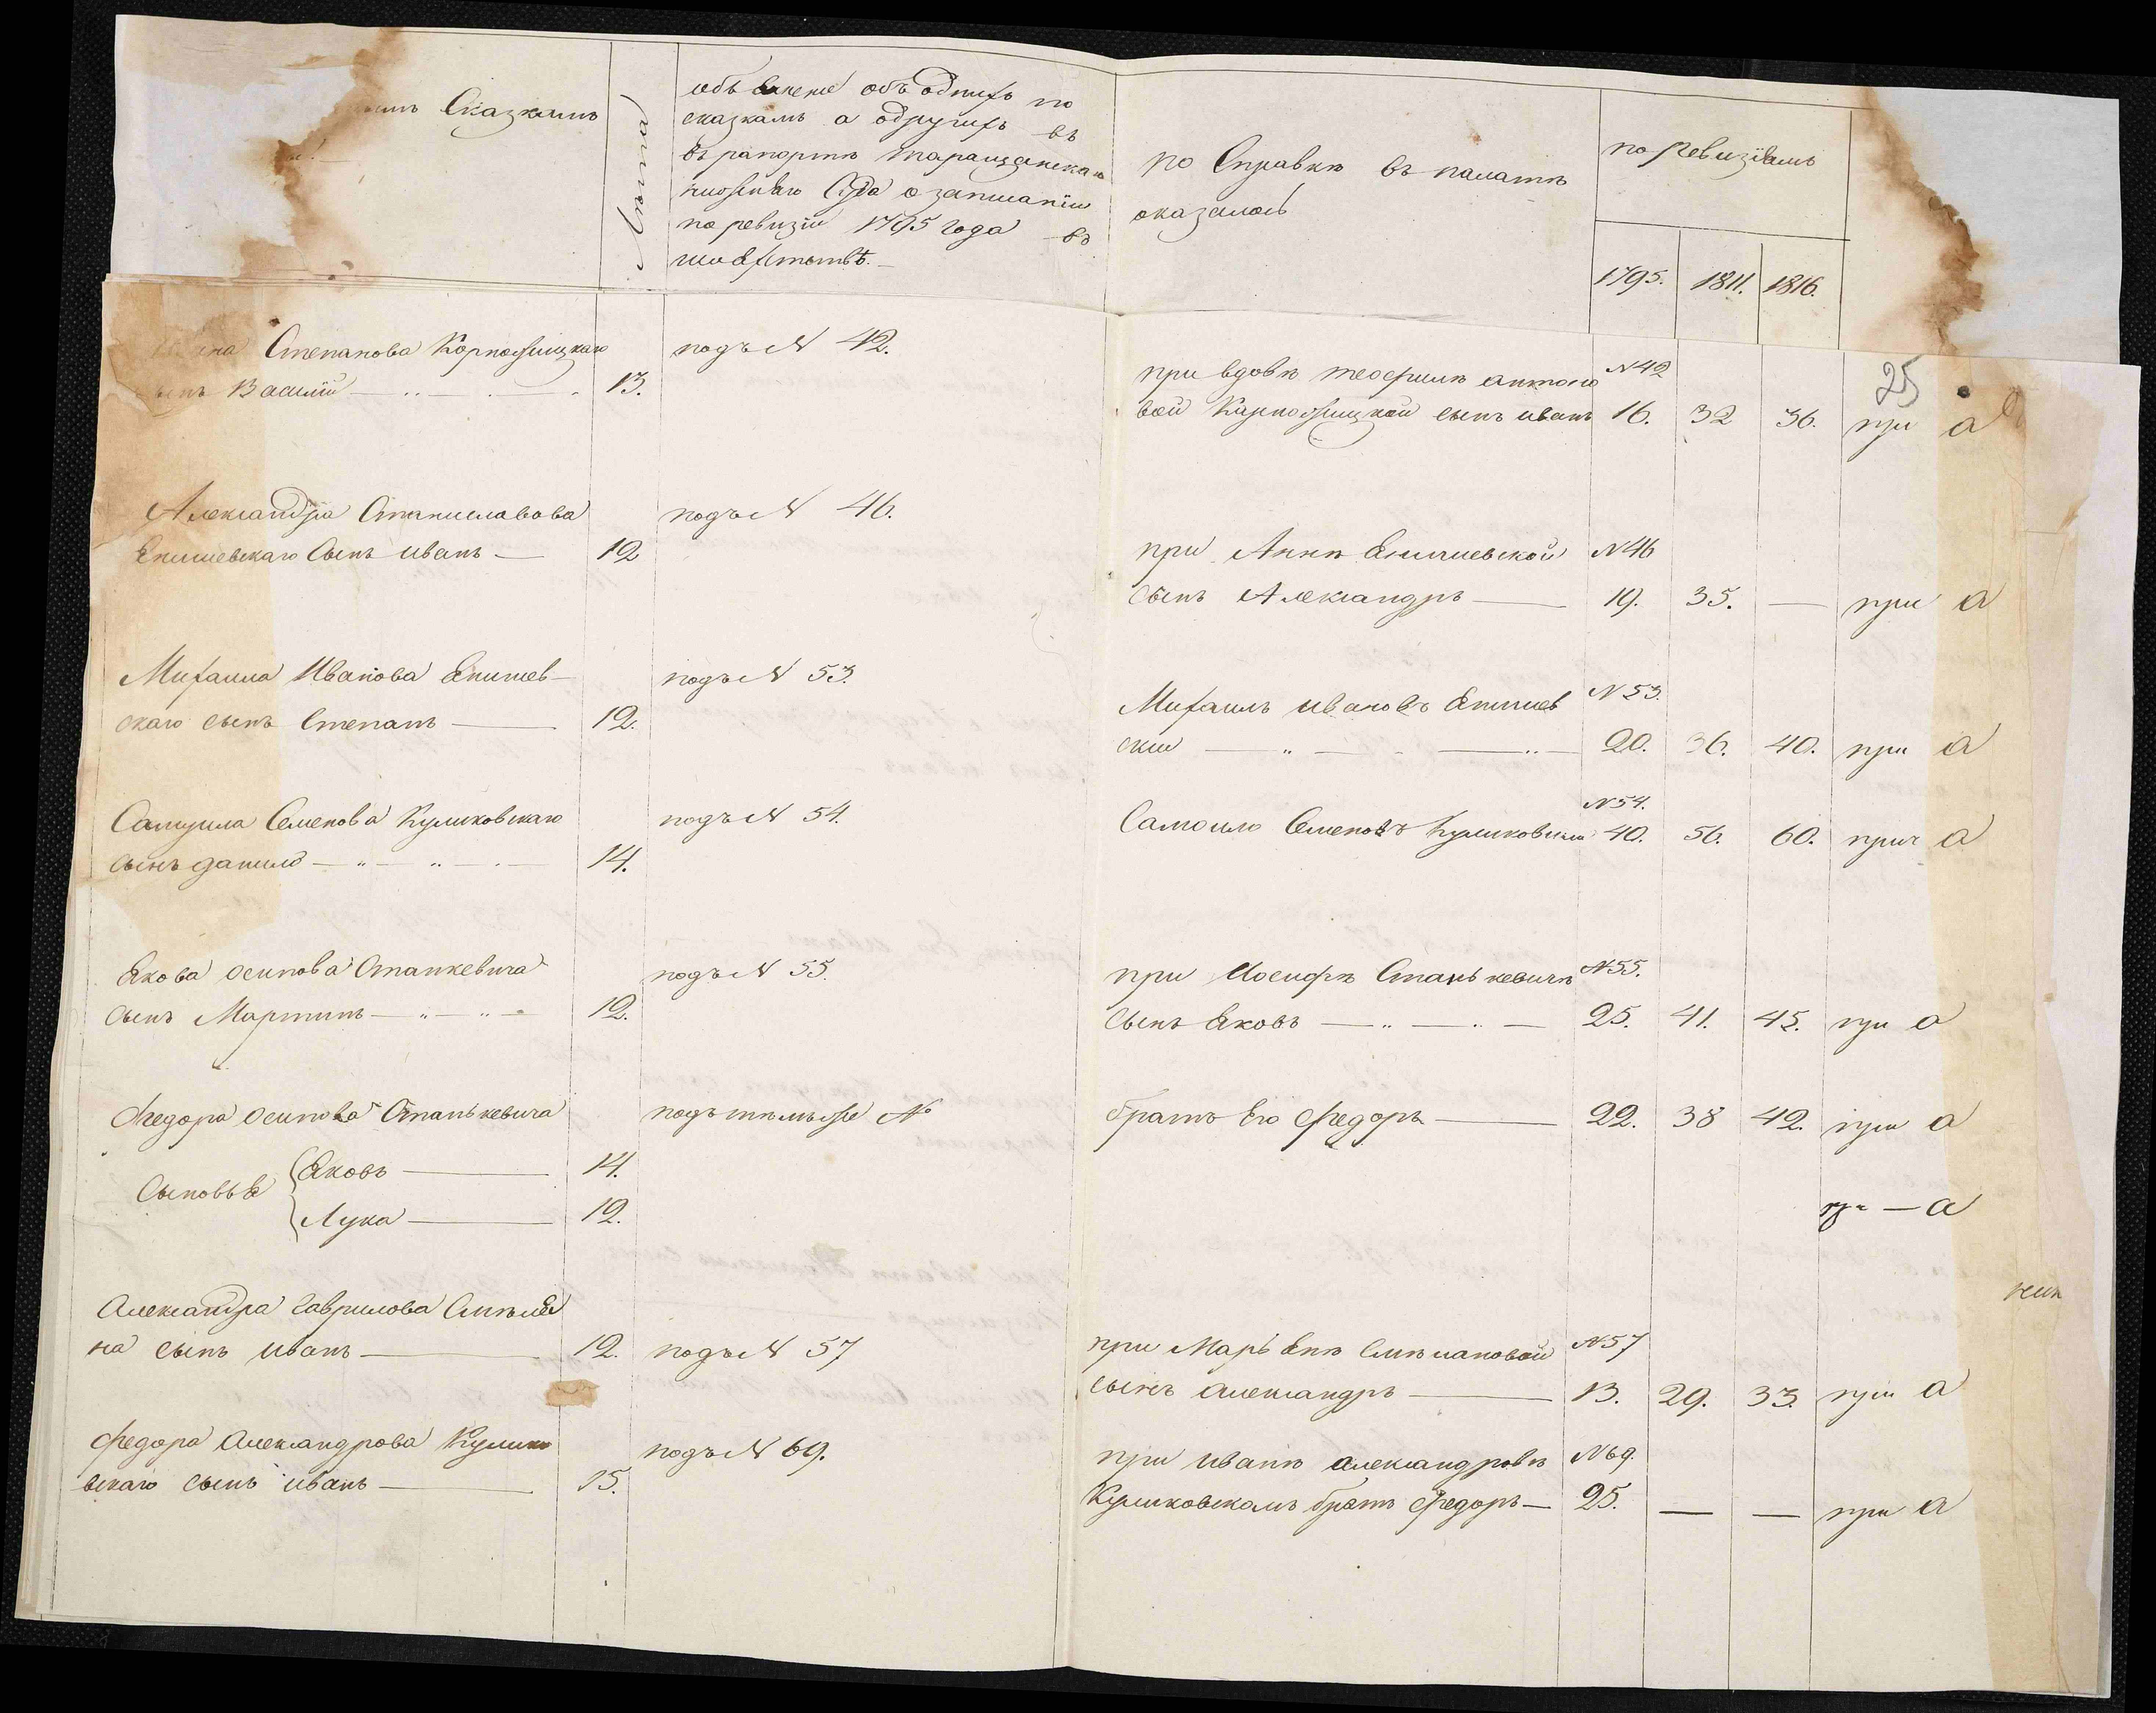 Сказкамъ
Лета
объявлене объ однихъ по
сказкамъ а одругихъ въ
въ рапортѣ Таращанскаго
нижняго Суда о записаніи
по ревизіи 1795 года въ
шляхетствѣ.
по Справкѣ въ палатѣ
оказалось
по ревизіямъ
1795. 1811. 1816.
25
Степанова
сынъ Василій 13.
подъ N 42.
при вдовѣ Теофилѣ Антоно N 42
вой сынъ иванъ 16. 32 36. при а
Александра Станиславова
Енишевскаго Сынъ иванъ 12
подъ N 46.
при Аннѣ Енишевской N 46
сынъ Александръ 19. 35. — при а
Михаила Иванова Енишев-
скаго сынъ Степанъ 12.
подъ N 53.
Михаилъ Ивановъ Енишев N 53.
скій 20. 36. 40. при а
Самуила Семенова Куликовскаго
сынъ данило 14.
подъ N 54.
N 54.
Самойло Семеновъ Куликовскій 40. 56. 60. при а
Якова осипова Станкевича
сынъ Мартинъ 12.
подъ N 55.
при Иосифѣ Станькевичѣ N 55.
сынъ Яковъ 25. 41. 45. при а
Федора осипова Станькевича
подъ тѣмъже №
братъ Его Федоръ 22. 38 42. при а
Сыновья
Яковъ 14.
Лука 12.
при — а
Александра Гаврилова
на сынъ иванъ 12. подъ N 57
при N 57
сынъ александръ 13. 29. 33. при а
Федора Александрова Кулико
вскаго сынъ иванъ 15.
подъ N 69.
при иванѣ александровѣ N 69.
Куликовскомъ братъ Федоръ 25. — — при а